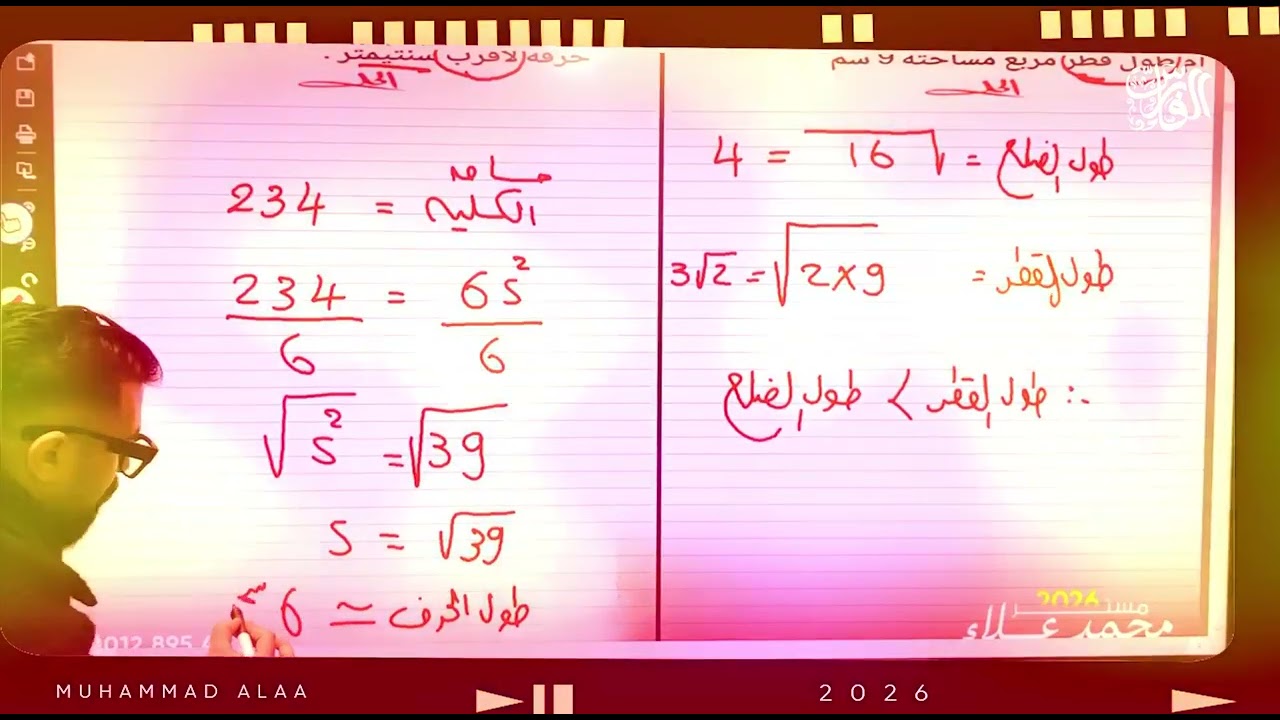 أم طول قطر مربع مساحته 9 سم
الحل
طول الضلع = √16 = 4
طول القطر = √2×9 = 3√2
∴ طول القطر > طول الضلع
حرفه لأقرب سنتيمتر .
الحل
مساحه
الكليه = 234
234 = 6S²
6 6
√S² = √39
S = √39
طول الحرف ≃ 6 سم
الفارس
2026
مستر
محمد علاء
012 895
MUHAMMAD ALAA
2026